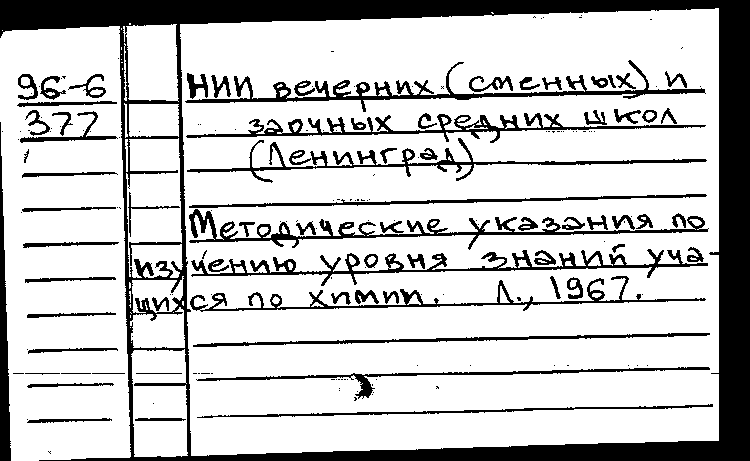 96-6
377
НИИ вечерних (сменных) и
заочных средних школ
(Ленинград)
Методические указания по
изучению уровня знаний уча-
щихся по химии. Л., 1967.